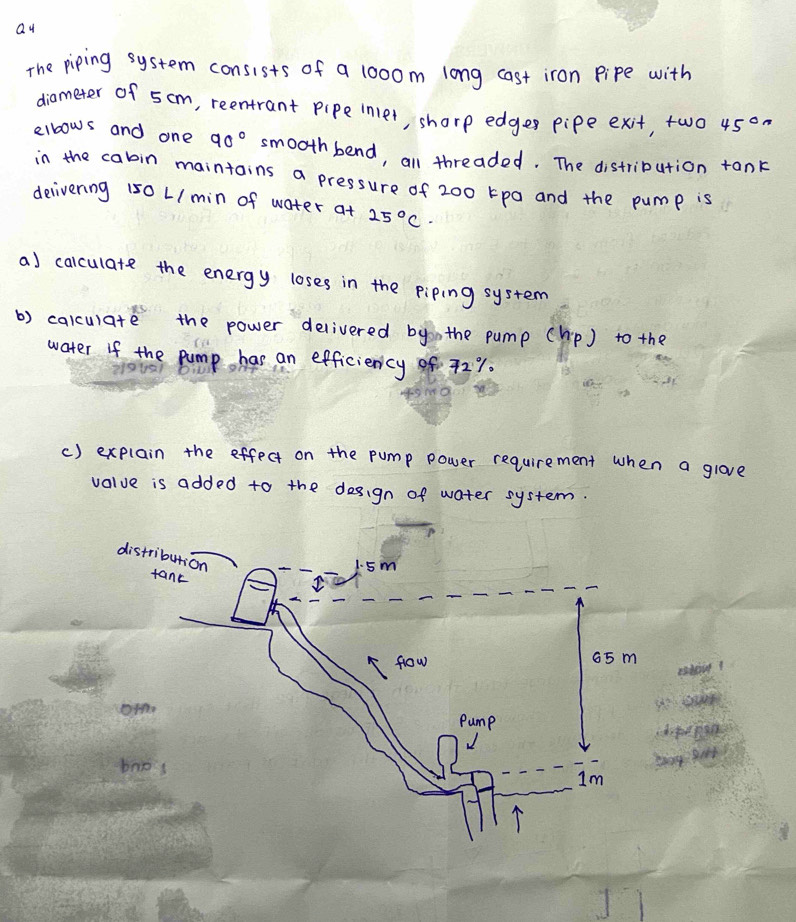 Q4
The piping system consists of a 1000 m long cast iron pipe with
diameter of 5 cm, reentrant pipe inlet, sharp edges pipe exit, two 45°
elbows and one 90° smooth bend, all threaded. The distribution tank
in the cabin maintains a pressure of 200 kpa and the pump is
delivering 150 L/min of water at 25°C.
a) calculate the energy loses in the piping system
b) calculate the power delivered by the pump (hp) to the
water if the pump has an efficiency of 72%.
c) explain the effect on the pump power requirement when a glove
valve is added to the design of water system.
distribution
tank
1.5 m
flow
65 m
Pump
1m